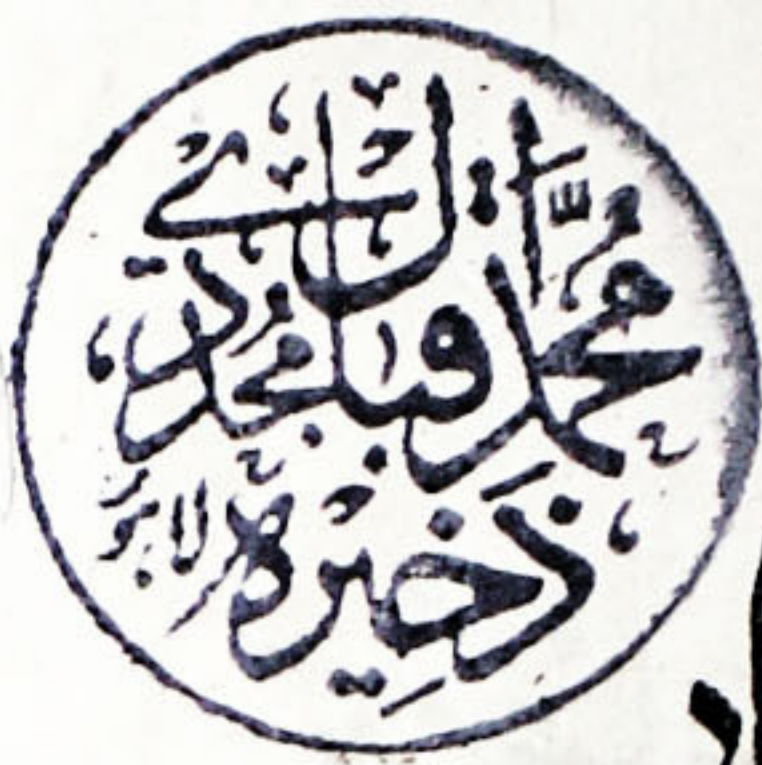 ذَخِیرہ
محمّد اقبال مجددی
لاہور